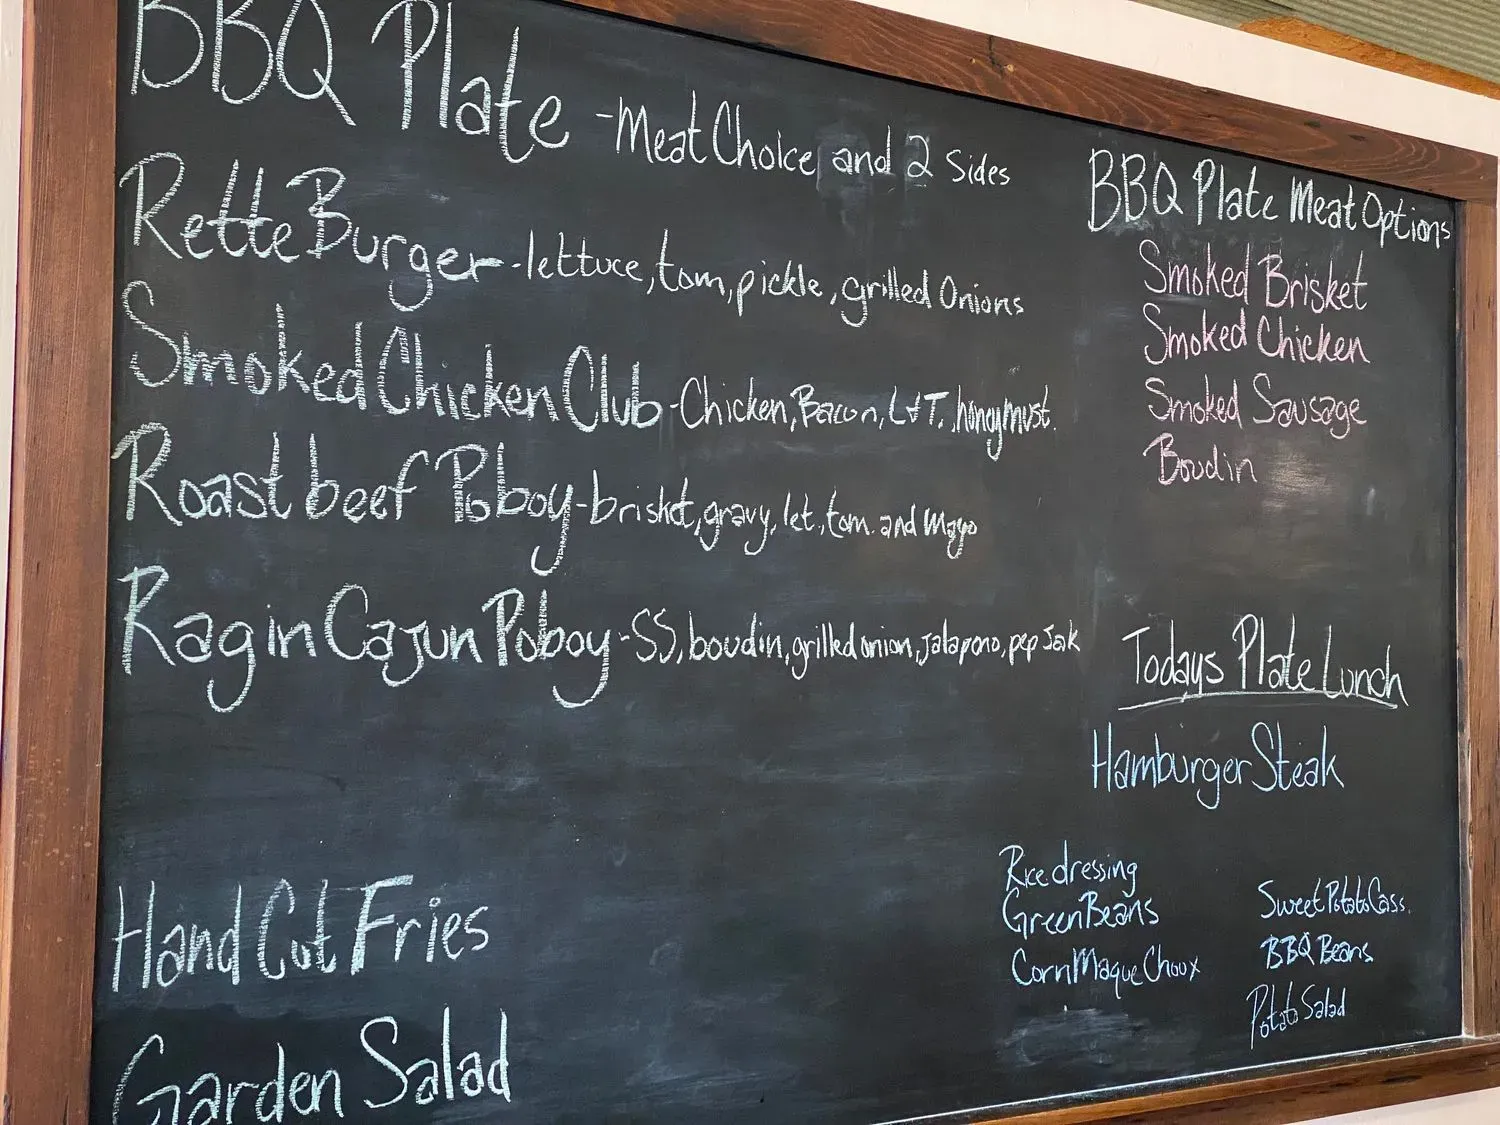 BBQ Plate - Meat Choice and 2 Sides
Rette Burger - lettuce, tom, pickle, grilled Onions
Smoked Chicken Club - Chicken, Bacon, L&T, honeymust.
Roast beef Poboy - brisket, gravy, let, tom. and Mayo
Ragin Cajun Poboy - SS, boudin, grilled onion, Jalapono, pep Jak
Hand Cut Fries
Garden Salad
BBQ Plate Meat Options
Smoked Brisket
Smoked Chicken
Smoked Sausage
Boudin
Todays Plate Lunch
Hamburger Steak
Rice dressing
Green Beans
Corn Maque Choux
Sweet Potato Cass.
BBQ Beans
Potato Salad